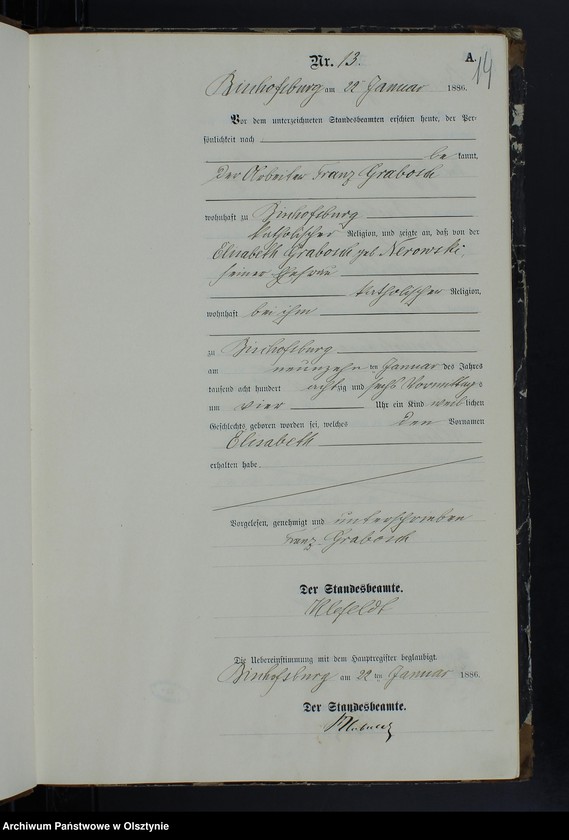 Nr. 13.
A.
14
Bischofsburg am 22 Januar 1886.
Vor dem unterzeichneten Standesbeamten erschien heute, der Per-
sönlichkeit nach
be kannt,
der Arbeiter Franz Grabosch
wohnhaft zu Bischofsburg
katholischer Religion, und zeigte an, daß von der
Elisabeth Grabosch geb Nerowski,
seiner Ehefrau
katholischer Religion,
wohnhaft bei ihm
zu Bischofsburg
am neunzehn ten Januar des Jahres
tausend acht hundert achtzig und sechs Vormittags
um vier Uhr ein Kind weiblichen
Geschlechts geboren worden sei, welches den Vornamen
Elisabeth
erhalten habe.
Vorgelesen, genehmigt und unterschrieben
Franz Grabosch
Der Standesbeamte.
Die Uebereinstimmung mit dem Hauptregister beglaubigt.
Bischofsburg am 22 ten Januar 1886.
Der Standesbeamte.
Archiwum Państwowe w Olsztynie